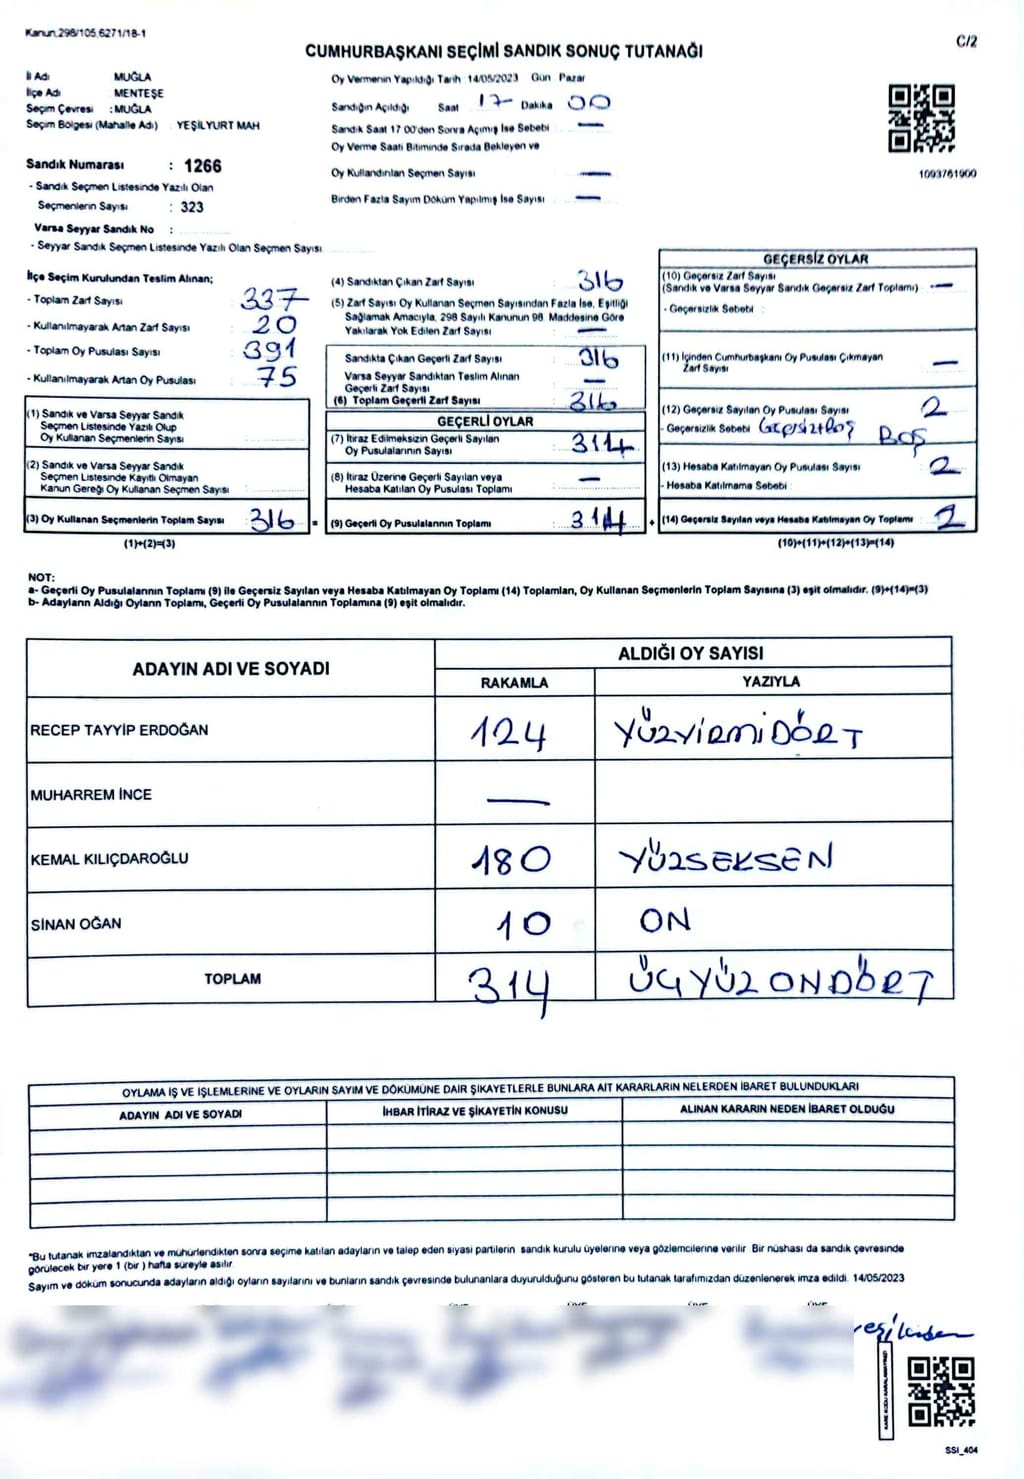 Kanun.298/105.6271/18-1
CUMHURBAŞKANI SEÇİMİ SANDIK SONUÇ TUTANAĞI
C/2
İl Adı MUĞLA
İlçe Adı MENTEŞE
Seçim Çevresi : MUĞLA
Seçim Bölgesi (Mahalle Adı) : YEŞİLYURT MAH
Sandık Numarası : 1266
- Sandık Seçmen Listesinde Yazılı Olan
Seçmenlerin Sayısı : 323
Varsa Seyyar Sandık No :
- Seyyar Sandık Seçmen Listesinde Yazılı Olan Seçmen Sayısı:
Oy Vermenin Yapıldığı Tarih 14/05/2023 Gün Pazar
Sandığın Açıldığı Saat 17 Dakika 00
Sandık Saat 17 00'den Sonra Açımış İse Sebebi —
Oy Verme Saati Bitiminde Sırada Bekleyen ve
Oy Kullandırılan Seçmen Sayısı —
Birden Fazla Sayım Döküm Yapılmış İse Sayısı —
1093761900
İlçe Seçim Kurulundan Teslim Alınan;
- Toplam Zarf Sayısı 337
- Kullanılmayarak Artan Zarf Sayısı 20
- Toplam Oy Pusulası Sayısı 391
- Kullanılmayarak Artan Oy Pusulası 75
(1) Sandık ve Varsa Seyyar Sandık
Seçmen Listesinde Yazılı Olup
Oy Kullanan Seçmenlerin Sayısı
(2) Sandık ve Varsa Seyyar Sandık
Seçmen Listesinde Kayıtlı Olmayan
Kanun Gereği Oy Kullanan Seçmen Sayısı
(3) Oy Kullanan Seçmenlerin Toplam Sayısı 316 =
(1)+(2)=(3)
(4) Sandıktan Çıkan Zarf Sayısı 316
(5) Zarf Sayısı Oy Kullanan Seçmen Sayısından Fazla İse, Eşitliği
Sağlamak Amacıyla, 298 Sayılı Kanunun 98. Maddesine Göre
Yakılarak Yok Edilen Zarf Sayısı —
Sandıkta Çıkan Geçerli Zarf Sayısı 316
Varsa Seyyar Sandıktan Teslim Alınan
Geçerli Zarf Sayısı —
(6) Toplam Geçerli Zarf Sayısı 316
GEÇERLİ OYLAR
(7) İtiraz Edilmeksizin Geçerli Sayılan
Oy Pusulalarının Sayısı 314
(8) İtiraz Üzerine Geçerli Sayılan veya
Hesaba Katılan Oy Pusulası Toplamı —
(9) Geçerli Oy Pusulalarının Toplamı 314 +
GEÇERSİZ OYLAR
(10) Geçersiz Zarf Sayısı
(Sandık ve Varsa Seyyar Sandık Geçersiz Zarf Toplamı) —
- Geçersizlik Sebebi :
(11) İçinden Cumhurbaşkanı Oy Pusulası Çıkmayan
Zarf Sayısı —
(12) Geçersiz Sayılan Oy Pusulası Sayısı 2
- Geçersizlik Sebebi BOŞ
(13) Hesaba Katılmayan Oy Pusulası Sayısı 2
- Hesaba Katılmama Sebebi :
(14) Geçersiz Sayılan veya Hesaba Katılmayan Oy Toplamı 2
(10)+(11)+(12)+(13)=(14)
NOT:
a- Geçerli Oy Pusulalarının Toplamı (9) ile Geçersiz Sayılan veya Hesaba Katılmayan Oy Toplamı (14) Toplamları, Oy Kullanan Seçmenlerin Toplam Sayısına (3) eşit olmalıdır. (9)+(14)=(3)
b- Adayların Aldığı Oyların Toplamı, Geçerli Oy Pusulalarının Toplamına (9) eşit olmalıdır.
ADAYIN ADI VE SOYADI ALDIĞI OY SAYISI
RAKAMLA YAZIYLA
RECEP TAYYİP ERDOĞAN 124 YÜZYİRMİDÖRT
MUHARREM İNCE —
KEMAL KILIÇDAROĞLU 180 YÜZSEKSEN
SİNAN OĞAN 10 ON
TOPLAM 314 ÜÇYÜZONDÖRT
OYLAMA İŞ VE İŞLEMLERİNE VE OYLARIN SAYIM VE DÖKÜMÜNE DAİR ŞİKAYETLERLE BUNLARA AİT KARARLARIN NELERDEN İBARET BULUNDUKLARI
ADAYIN ADI VE SOYADI İHBAR İTİRAZ VE ŞİKAYETİN KONUSU ALINAN KARARIN NEDEN İBARET OLDUĞU
*Bu tutanak imzalandıktan ve mühürlendikten sonra seçime katılan adayların ve talep eden siyasi partilerin sandık kurulu üyelerine veya gözlemcilerine verilir Bir nüshası da sandık çevresinde
görülecek bir yere 1 (bir) hafta süreyle asılır.
Sayım ve döküm sonucunda adayların aldığı oyların sayılarını ve bunların sandık çevresinde bulunanlara duyurulduğunu gösteren bu tutanak tarafımızdan düzenlenerek imza edildi. 14/05/2023
KARE KODU KARALAMAYINIZ!
SSI_404